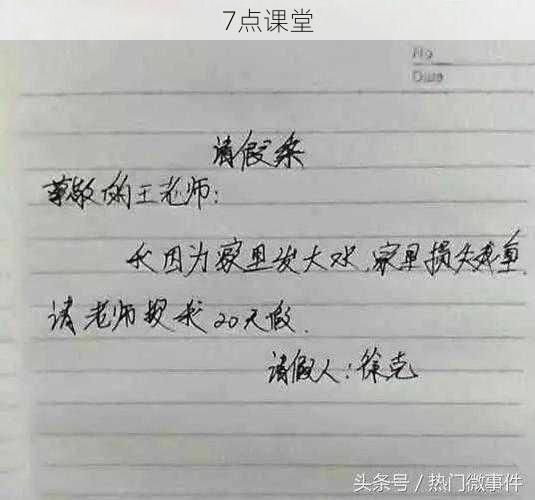 7点课堂
No
Date
请假条
尊敬的王老师:
我因为家里发大水,家里损失惨重,
请老师批我20天假.
请假人:徐克
头条号/热门微事件